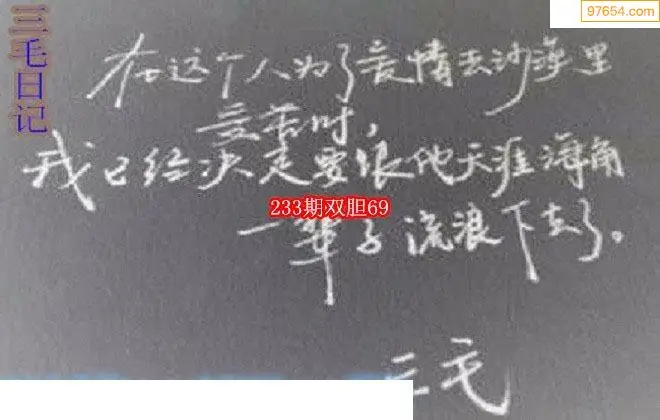 97654.com
三毛日记
在这个人为了爱情去沙漠里
受苦时,
我已经决定要跟他天涯海角
233期双胆69
一辈子流浪下去了。
三毛